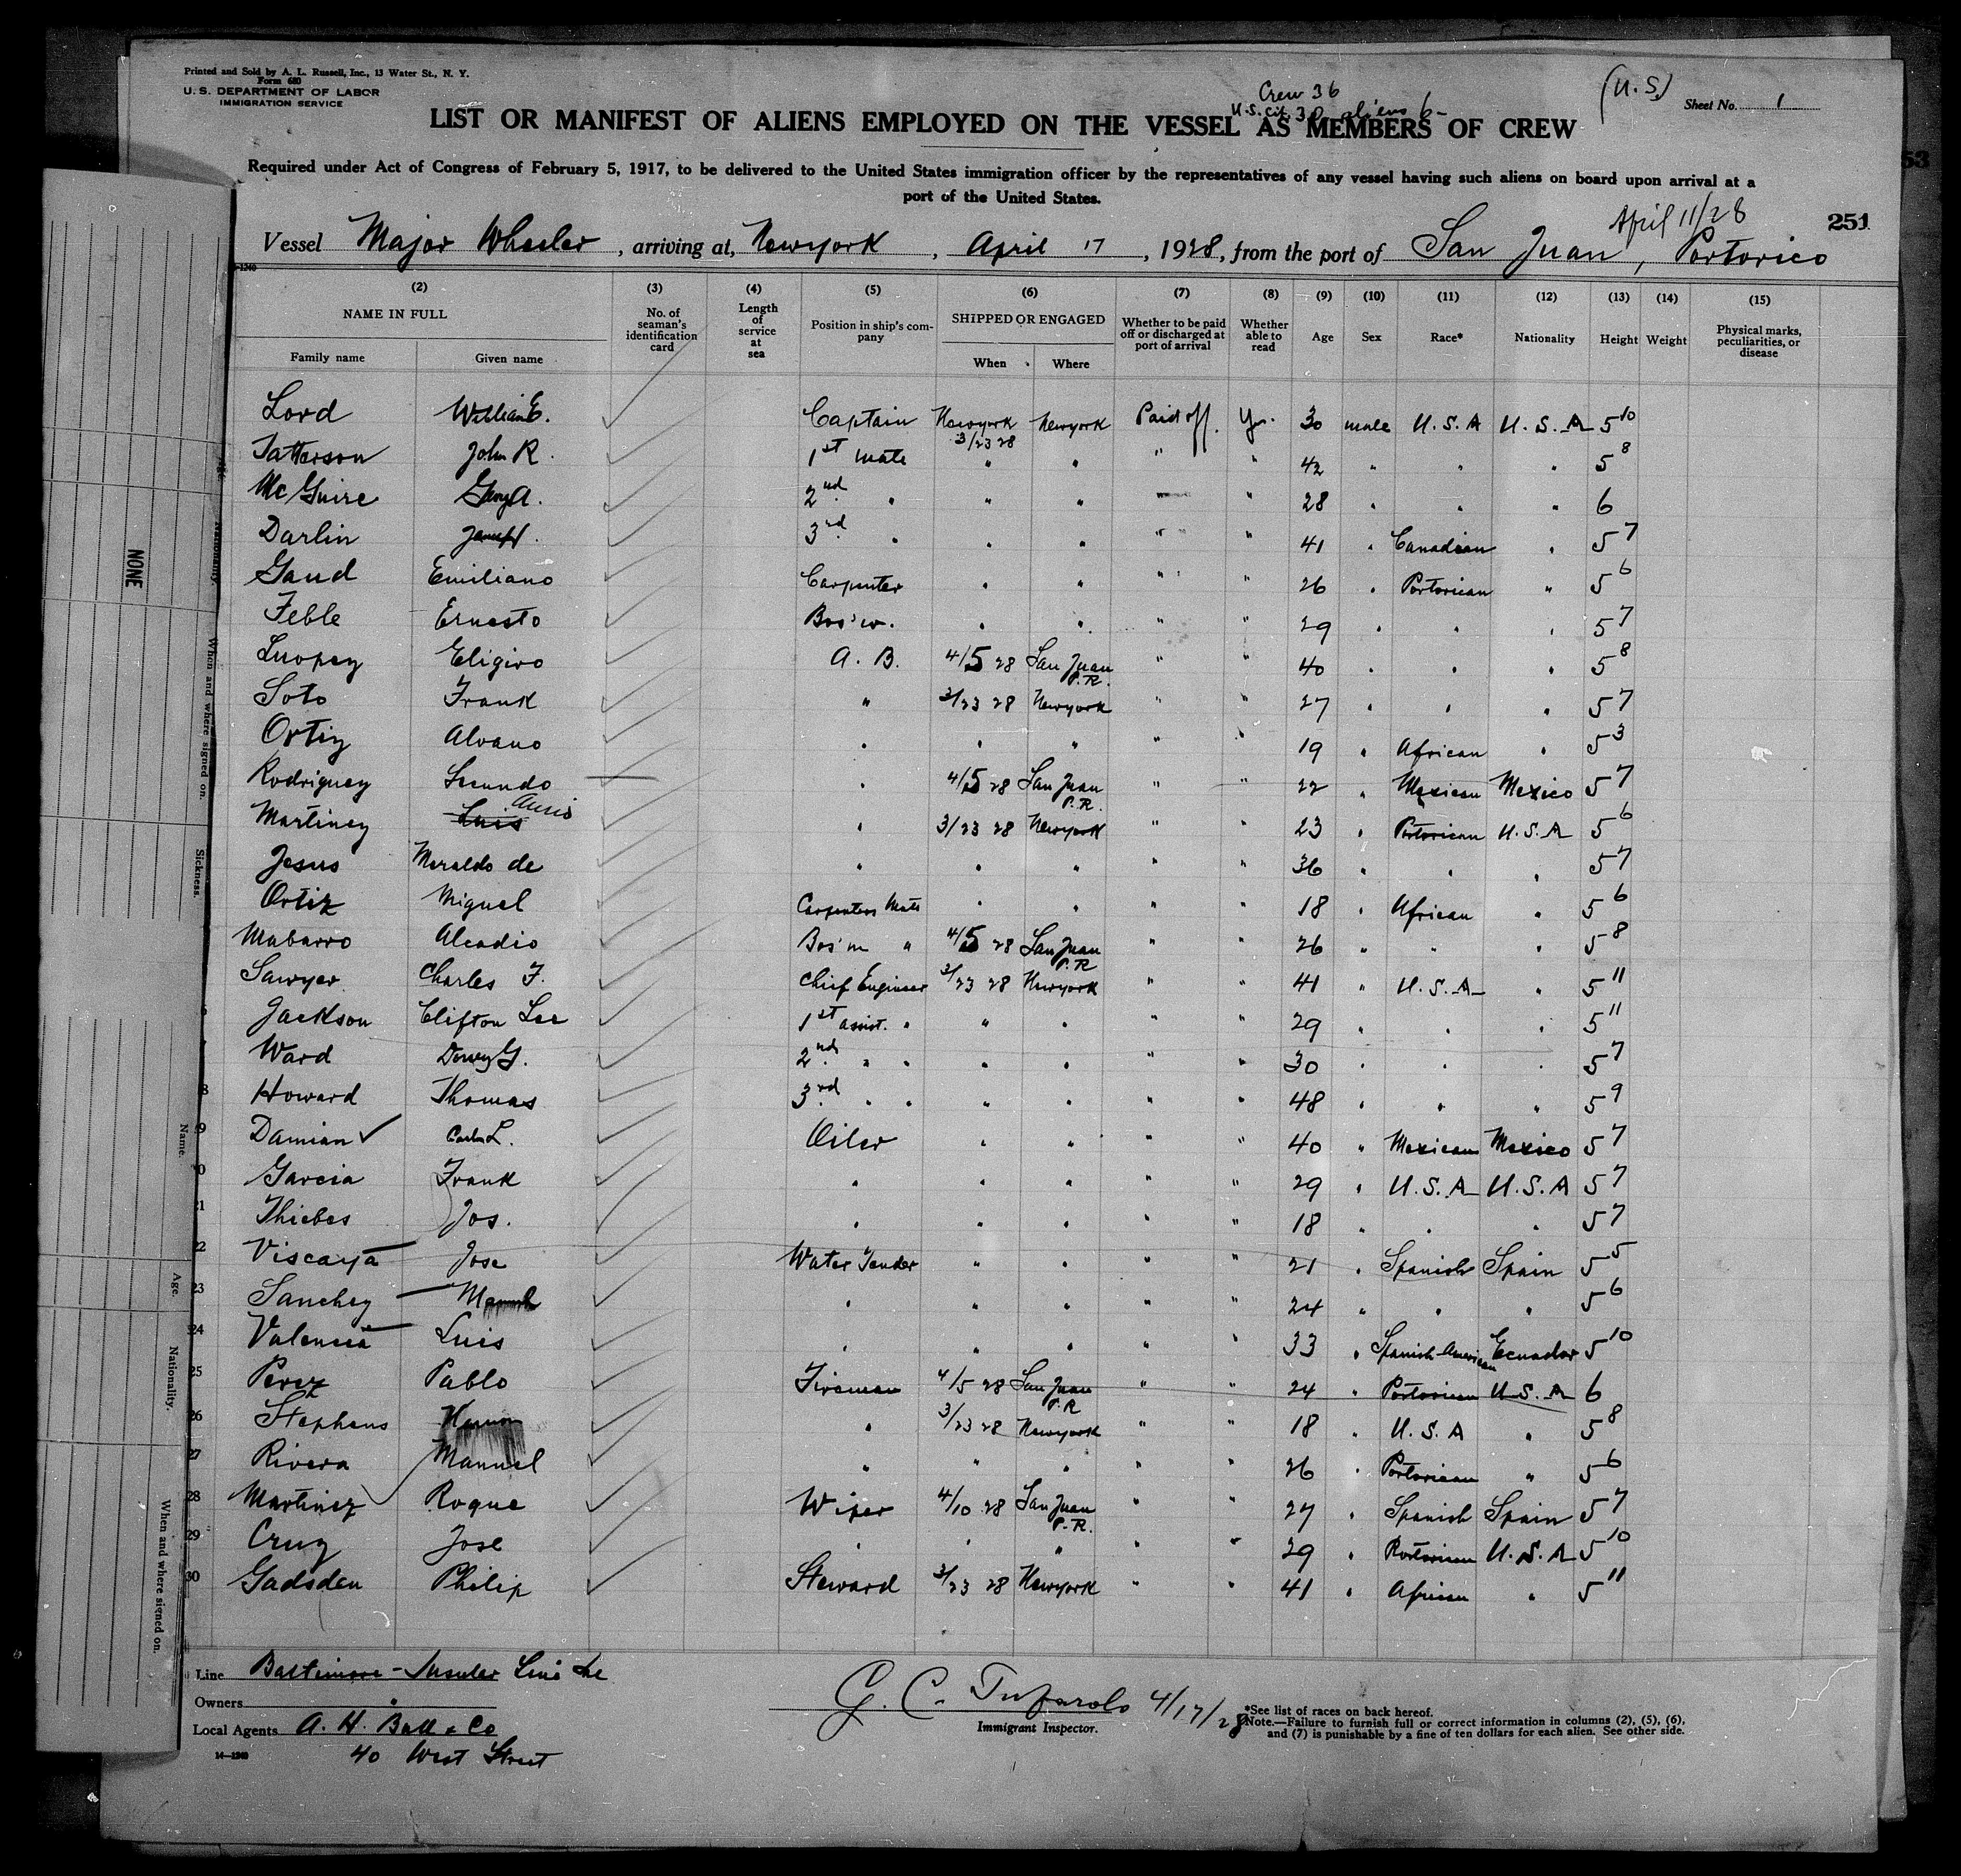 Printed and Sold by A. L. Russell, Inc., 13 Water St., N. Y.
Form 680
U. S. DEPARTMENT OF LABOR
IMMIGRATION SERVICE
Crew 36
U.S. cit. 30 aliens 6
(U.S.)
Sheet No. 1
LIST OR MANIFEST OF ALIENS EMPLOYED ON THE VESSEL AS MEMBERS OF CREW
Required under Act of Congress of February 5, 1917, to be delivered to the United States immigration officer by the representatives of any vessel having such aliens on board upon arrival at a
port of the United States.
53
April 11/28
251
Vessel Major Wheeler, arriving at, Newyork, April 17, 1928, from the port of San Juan, Portorico
(2) (3) (4) (5) (6) (7) (8) (9) (10) (11) (12) (13) (14) (15)
NAME IN FULL
Family name Given name
No. of seaman's identification card
Length of service at sea
Position in ship's company
SHIPPED OR ENGAGED
When Where
Whether to be paid off or discharged at port of arrival
Whether able to read
Age Sex Race* Nationality Height Weight
Physical marks, peculiarities, or disease
Lord William E. Captain Newyork 3/23 28 Newyork Paid off. Yes. 30 male U.S.A U.S.A 5 10
Patterson John R. 1st mate " " " " 42 " " " 5 8
McGuire 2nd " " " " " 28 " " " 6
Darlin 3rd " " " " " 41 " Canadian " 5 7
Gaud Emiliano Carpenter " " " " 26 " Portorican " 5 6
Feble Ernesto Bos'w. " " " " 29 " " " 5 7
Luopez Eligiro A. B. 4/5 28 San Juan P.R. " " 40 " " " 5 8
Soto Frank " 3/23 28 Newyork " " 27 " " " 5 7
Ortiz Alvano " " " " " 19 " African " 5 3
Rodriguez Secundo " 4/5 28 San Juan P.R. " " 22 " Mexican Mexico 5 7
Martinez Luis " 3/23 28 Newyork " " 23 " Portorican U.S.A 5 6
Jesus Moraldo de " " " " " 36 " " " 5 7
Ortiz Miguel Carpenters Mate " " " " 18 " African " 5 6
Mabarro Alcadio Bos'm " 4/5 28 San Juan P.R " " 26 " " " 5 8
Sawyer Charles F. Chief Engineer 3/23 28 Newyork " " 41 " U.S.A " 5 11
Jackson Clifton Lee 1st assist. " " " " " 29 " " " 5 11
Ward Dewey G. 2nd " " " " " " 30 " " " 5 7
Howard Thomas 3rd " " " " " " 48 " " " 5 9
Damian Carlos L. Oiler " " " " 40 " Mexican Mexico 5 7
Garcia Frank " " " " " 29 " U.S.A U.S.A 5 7
Thiebes Jos. " " " " " 18 " " " 5 7
Viscaya Jose Water Tender " " " " 21 " Spanish Spain 5 5
Sanchez Manuel " " " " " 24 " " " 5 6
Valencia Luis " " " " " 33 " Spanish American Ecuador 5 10
Perez Pablo Fireman 4/5 28 San Juan P.R " " 24 " Portorican U.S.A 6
Stephens " 3/23 28 Newyork " " 18 " U.S.A " 5 8
Rivera Manuel " " " " " 26 " Portorican " 5 6
Martinez Roque Wiper 4/10 28 San Juan P.R. " " 27 " Spanish Spain 5 7
Cruz Jose " " " " " 29 " Portorican U.S.A 5 10
Gadsden Philip Steward 3/23 28 Newyork " " 41 " African " 5 11
NONE
Nationality.
When and where signed on.
Sickness.
Name.
Age.
Nationality.
When and where signed on.
Line Baltimore - Insular Line Inc
Owners "
Local Agents A. H. Bull & Co
40 West Street
14—1240
Immigrant Inspector.
4/17/28
*See list of races on back hereof.
Note.—Failure to furnish full or correct information in columns (2), (5), (6),
and (7) is punishable by a fine of ten dollars for each alien. See other side.